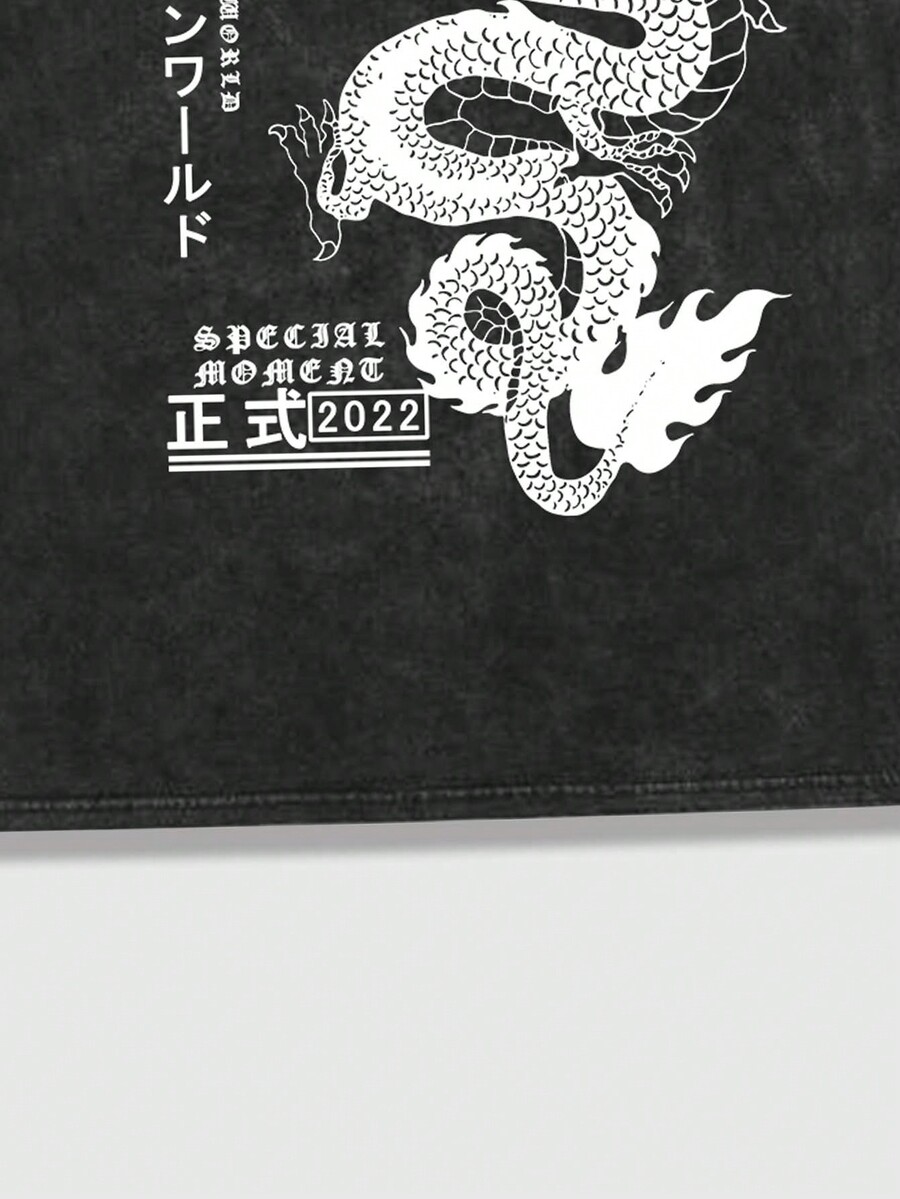 ンワールド
WORLD
SPECIAL
MOMENT
正式 2022